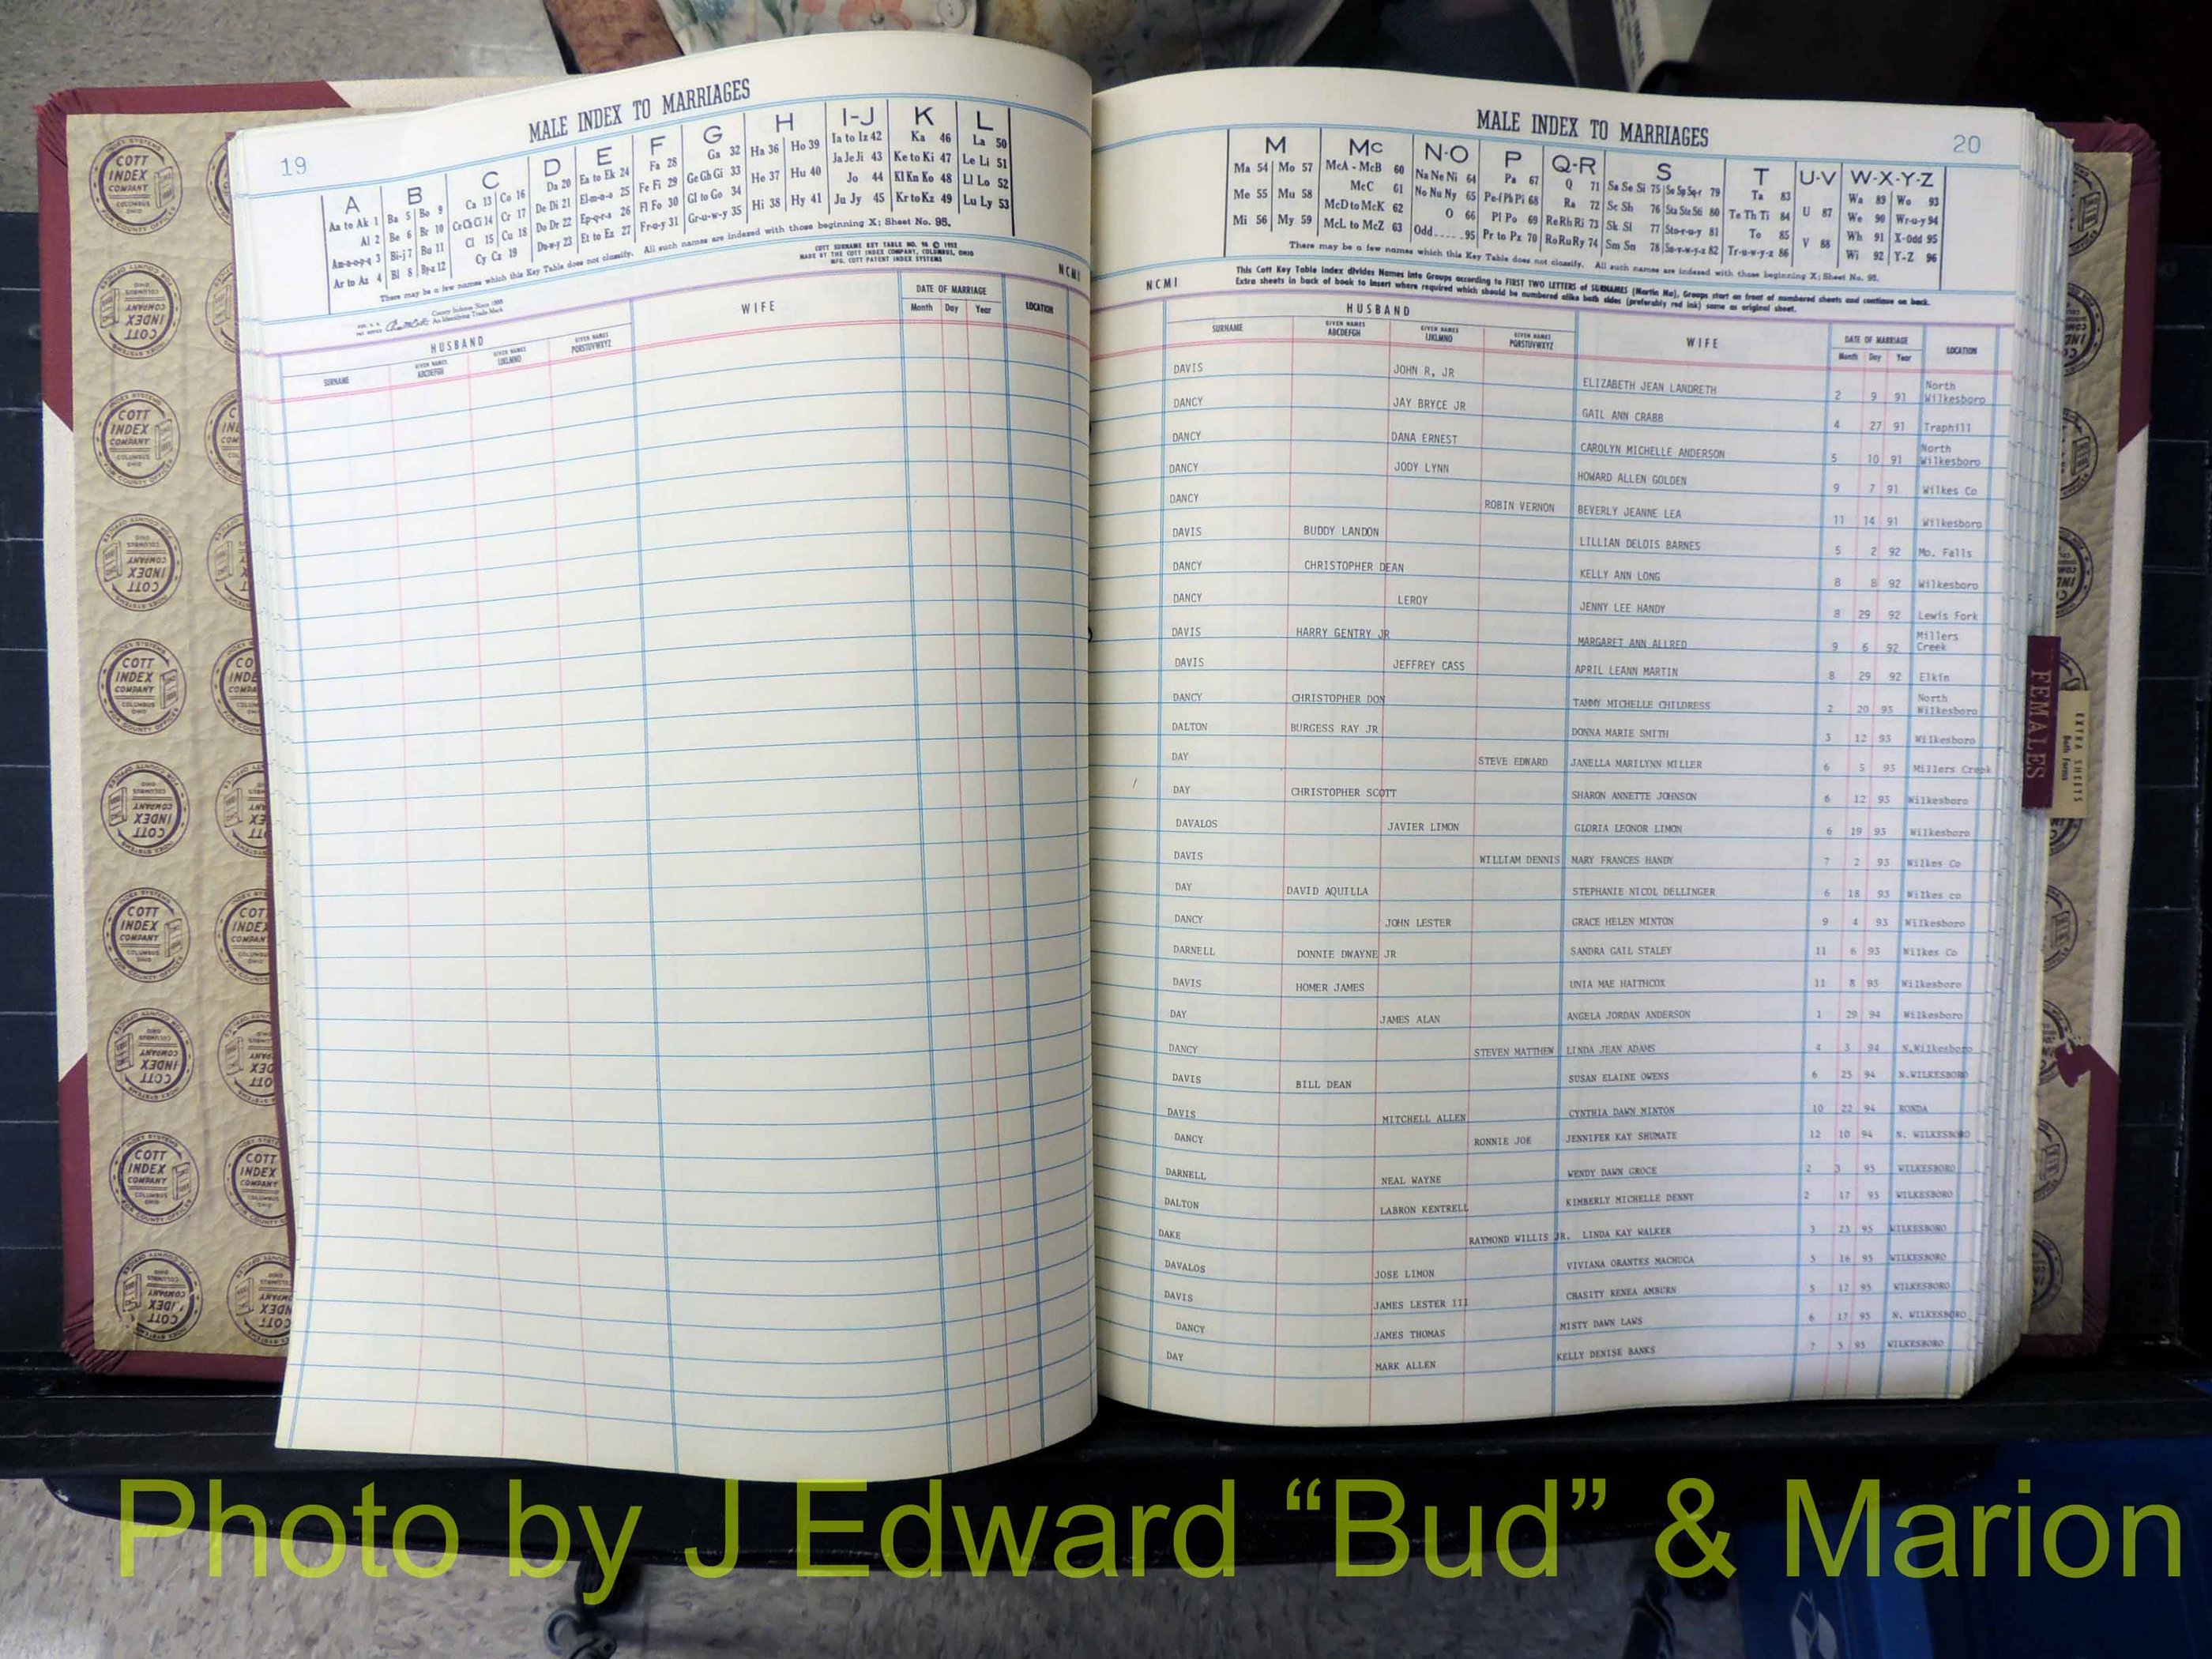 19
MALE INDEX TO MARRIAGES
A B C D E F G H I-J K L
Aa to Ak 1 Ba 5 Bo 9 Ca 13 Co 16 Da 20 Ea to Ek 24 Fa 28 Ga 32 Ha 36 Ho 39 Ia to Iz 42 Ka 46 La 50
Al 2 Be 6 Br 10 Ce Ch Ci 14 Cr 17 De Di 21 El-m-n-o 25 Fe Fi 29 Ge Gh Gi 33 He 37 Hu 40 Ja Je Ji 43 Ke to Ki 47 Le Li 51
Am-n-o-p-q 3 Bi-j 7 Bu 11 Cl 15 Cu 18 Do Dr 22 Ep-q-r-s 26 Fl Fo 30 Gl to Go 34 Hi 38 Hy 41 Jo 44 Kl Kn Ko 48 Ll Lo 52
Ar to Az 4 Bl 8 Bpa 12 Cy Cz 19 Du-w-y 23 Et to Ez 27 Fr-u-y 31 Gr-u-w-y 35 Ju Jy 45 Kr to Kz 49 Lu Ly 53
There may be a few names which this Key Table does not classify. All such names are indexed with those beginning X; Sheet No. 95.
COTT SURNAME KEY TABLE NO. 96 © 1952
MADE BY THE COTT INDEX COMPANY, COLUMBUS, OHIO
MFG. COTT PATENT INDEX SYSTEMS
NCMI
County Indexes Since 1888
An Identifying Trade Mark
HUSBAND WIFE DATE OF MARRIAGE LOCATION
SURNAME GIVEN NAMES ABCDEFGH GIVEN NAMES IJKLMNO GIVEN NAMES PQRSTUVWXYZ Month Day Year
MALE INDEX TO MARRIAGES
20
M Mc N-O P Q-R S T U-V W-X-Y-Z
Ma 54 Mo 57 McA - McB 60 Na Ne Ni 64 Pa 67 Q 71 Sa Se Si 75 So Sp Sq-r 79 Ta 83 Wa 89 Wo 93
Me 55 Mu 58 McC 61 No Nu Ny 65 Pe-f Ph Pi 68 Ra 72 Sc Sh 76 Sta Ste St6 80 Te Th Ti 84 U 87 We 90 Wr-u-y 94
Mi 56 My 59 McD to McK 62 O 66 Pl Po 69 Re Rh Ri 73 Sk Sl 77 Sto-r-u-y 81 To 85 V 88 Wh 91 X-Odd 95
McL to McZ 63 Odd.....95 Pr to Pz 70 Ro Ru Ry 74 Sm Sn 78 Su-v-w-y-z 82 Tr-u-w-y-z 86 Wi 92 Y-Z 96
There may be a few names which this Key Table does not classify. All such names are indexed with those beginning X; Sheet No. 95.
NCMI
This Cott Key Table Index divides Names into Groups according to FIRST TWO LETTERS of SURNAMES (Martin Ma), Groups start on front of numbered sheets and continue on back.
Extra sheets in back of book to insert where required which should be numbered alike both sides (preferably red ink) same as original sheet.
HUSBAND WIFE DATE OF MARRIAGE LOCATION
SURNAME GIVEN NAMES ABCDEFGH GIVEN NAMES IJKLMNO GIVEN NAMES PQRSTUVWXYZ Month Day Year
DAVIS JOHN R, JR ELIZABETH JEAN LANDRETH 2 9 91 North Wilkesboro
DANCY JAY BRYCE JR GAIL ANN CRABB 4 27 91 Traphill
DANCY DANA ERNEST CAROLYN MICHELLE ANDERSON 5 10 91 North Wilkesboro
DANCY JODY LYNN HOWARD ALLEN GOLDEN 9 7 91 Wilkes Co
DANCY ROBIN VERNON BEVERLY JEANNE LEA 11 14 91 Wilkesboro
DAVIS BUDDY LANDON LILLIAN DELOIS BARNES 5 2 92 Mo. Falls
DANCY CHRISTOPHER DEAN KELLY ANN LONG 8 8 92 Wilkesboro
DANCY LEROY JENNY LEE HANDY 8 29 92 Lewis Fork
DAVIS HARRY GENTRY JR MARGARET ANN ALLRED 9 6 92 Millers Creek
DAVIS JEFFREY CASS APRIL LEANN MARTIN 8 29 92 Elkin
DANCY CHRISTOPHER DON TAMMY MICHELLE CHILDRESS 2 20 93 North Wilkesboro
DALTON BURGESS RAY JR DONNA MARIE SMITH 3 12 93 Wilkesboro
DAY STEVE EDWARD JANELLA MARILYNN MILLER 6 5 93 Millers Creek
DAY CHRISTOPHER SCOTT SHARON ANNETTE JOHNSON 6 12 93 Wilkesboro
DAVALOS JAVIER LIMON GLORIA LEONOR LIMON 6 19 93 Wilkesboro
DAVIS WILLIAM DENNIS MARY FRANCES HANDY 7 2 93 Wilkes Co
DAY DAVID AQUILLA STEPHANIE NICOL DELLINGER 6 18 93 Wilkes co
DANCY JOHN LESTER GRACE HELEN MINTON 9 4 93 Wilkesboro
DARNELL DONNIE DWAYNE JR SANDRA GAIL STALEY 11 6 93 Wilkes Co
DAVIS HOMER JAMES UNIA MAE HAITHCOX 11 8 93 Wilkesboro
DAY JAMES ALAN ANGELA JORDAN ANDERSON 1 29 94 Wilkesboro
DANCY STEVEN MATTHEW LINDA JEAN ADAMS 4 3 94 N.Wilkesboro
DAVIS BILL DEAN SUSAN ELAINE OWENS 6 25 94 N.WILKESBORO
DAVIS MITCHELL ALLEN CYNTHIA DAWN MINTON 10 22 94 RONDA
DANCY RONNIE JOE JENNIFER KAY SHUMATE 12 10 94 N. WILKESBORO
DARNELL NEAL WAYNE WENDY DAWN GROCE 2 3 95 WILKESBORO
DALTON LABRON KENTRELL KIMBERLY MICHELLE DENNY 2 17 95 WILKESBORO
DAKE RAYMOND WILLIS JR. LINDA KAY WALKER 3 23 95 WILKESBORO
DAVALOS JOSE LIMON VIVIANA ORANTES MACHUCA 5 16 95 WILKESBORO
DAVIS JAMES LESTER III CHASITY RENEA AMBURN 5 17 95 WILKESBORO
DANCY JAMES THOMAS MISTY DAWN LAWS 6 17 95 N. WILKESBORO
DAY MARK ALLEN KELLY DENISE BANKS 7 3 95 WILKESBORO
FEMALES
EXTRA SHEETS
Both Forms
COTT INDEX COMPANY
COLUMBUS OHIO
INDEX SYSTEMS
FOR COUNTY OFFICES
Photo by J Edward “Bud” & Marion